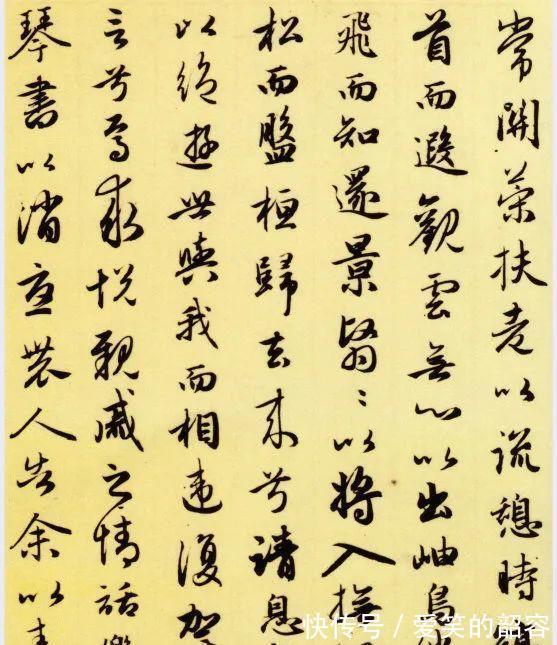 常關策扶老以流憩時
首而遐觀雲無心以出岫鳥
飛而知還景翳〻以將入撫
松而盤桓歸去來兮請息
以絕遊世與我而相違復駕
言兮焉求悅親戚之情話樂
琴書以消憂農人告余以春
快传号 / 爱笑的韶容